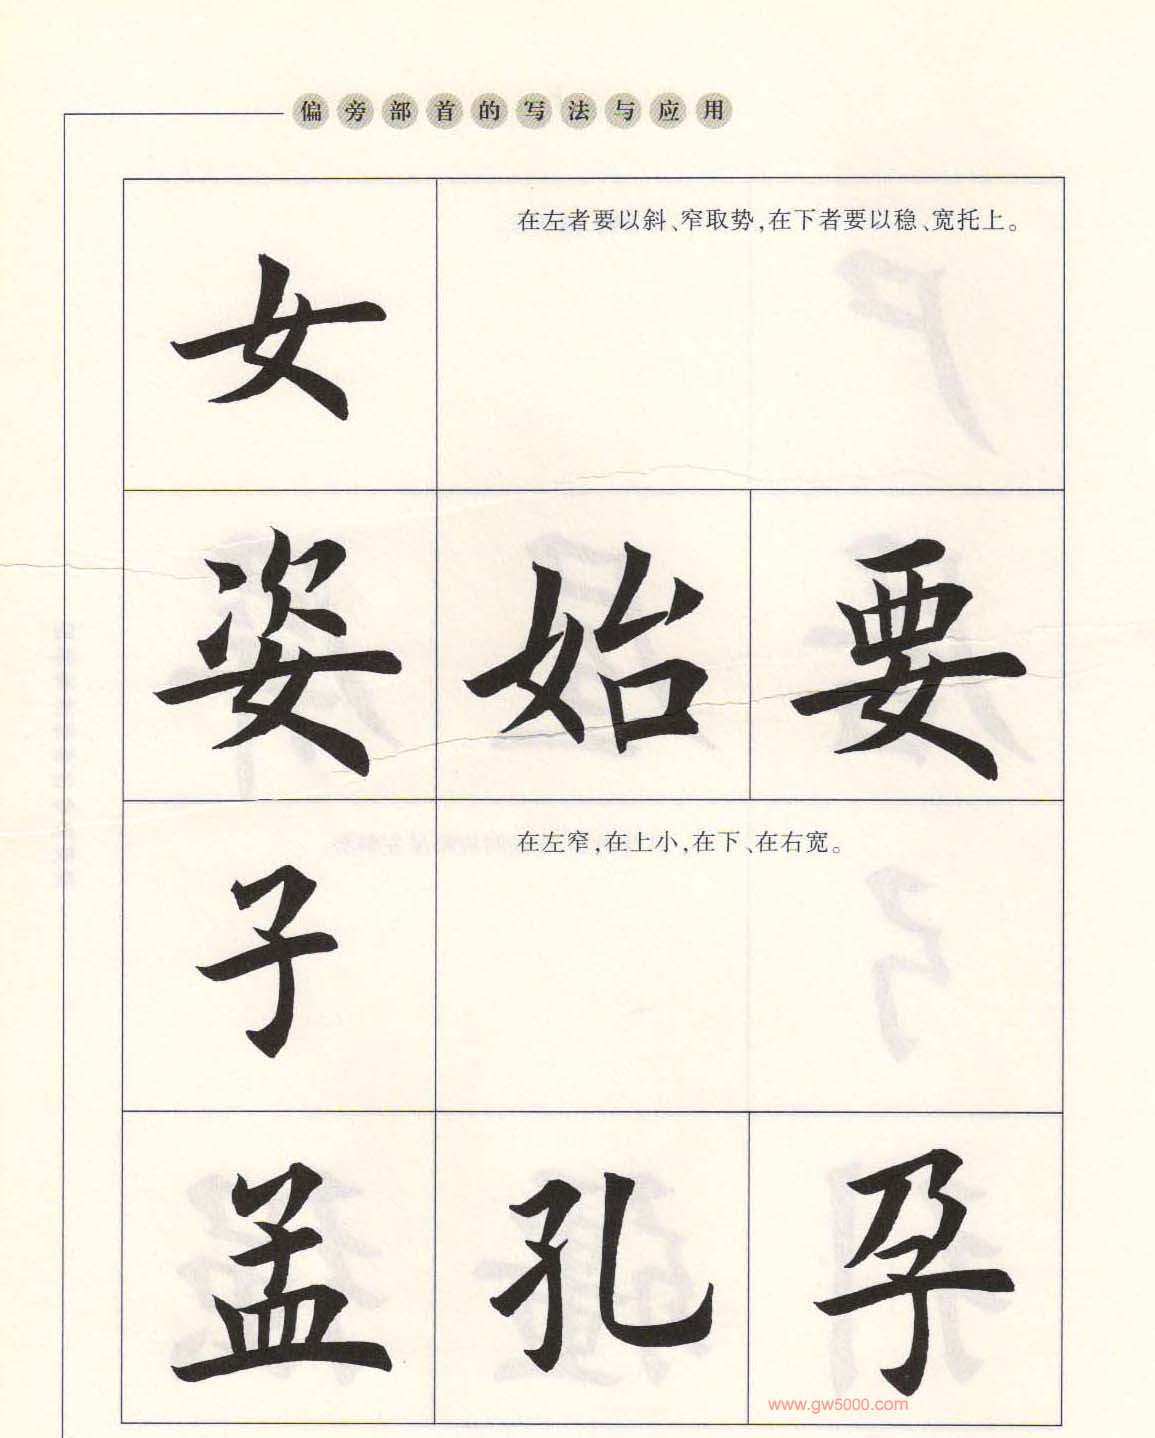 偏旁部首的写法与应用
女
在左者要以斜、窄取势,在下者要以稳、宽托上。
姿 始 要
子
在左窄,在上小,在下、在右宽。
孟 孔 孕
www.gw5000.com